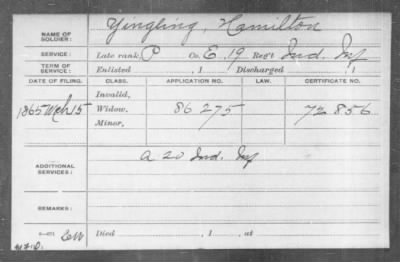 NAME OF SOLDIER: Yingling, Hamilton
SERVICE: Late rank, P Co. E, 19 Reg't Ind. Inf
TERM OF SERVICE: Enlisted , 1 Discharged , 1
DATE OF FILING. CLASS. APPLICATION NO. LAW. CERTIFICATE NO.
Invalid,
1865 Mch 15 Widow, 86 275 72 856
Minor,
ADDITIONAL SERVICES: A 20 Ind. Inf
REMARKS:
Died , 1 , at